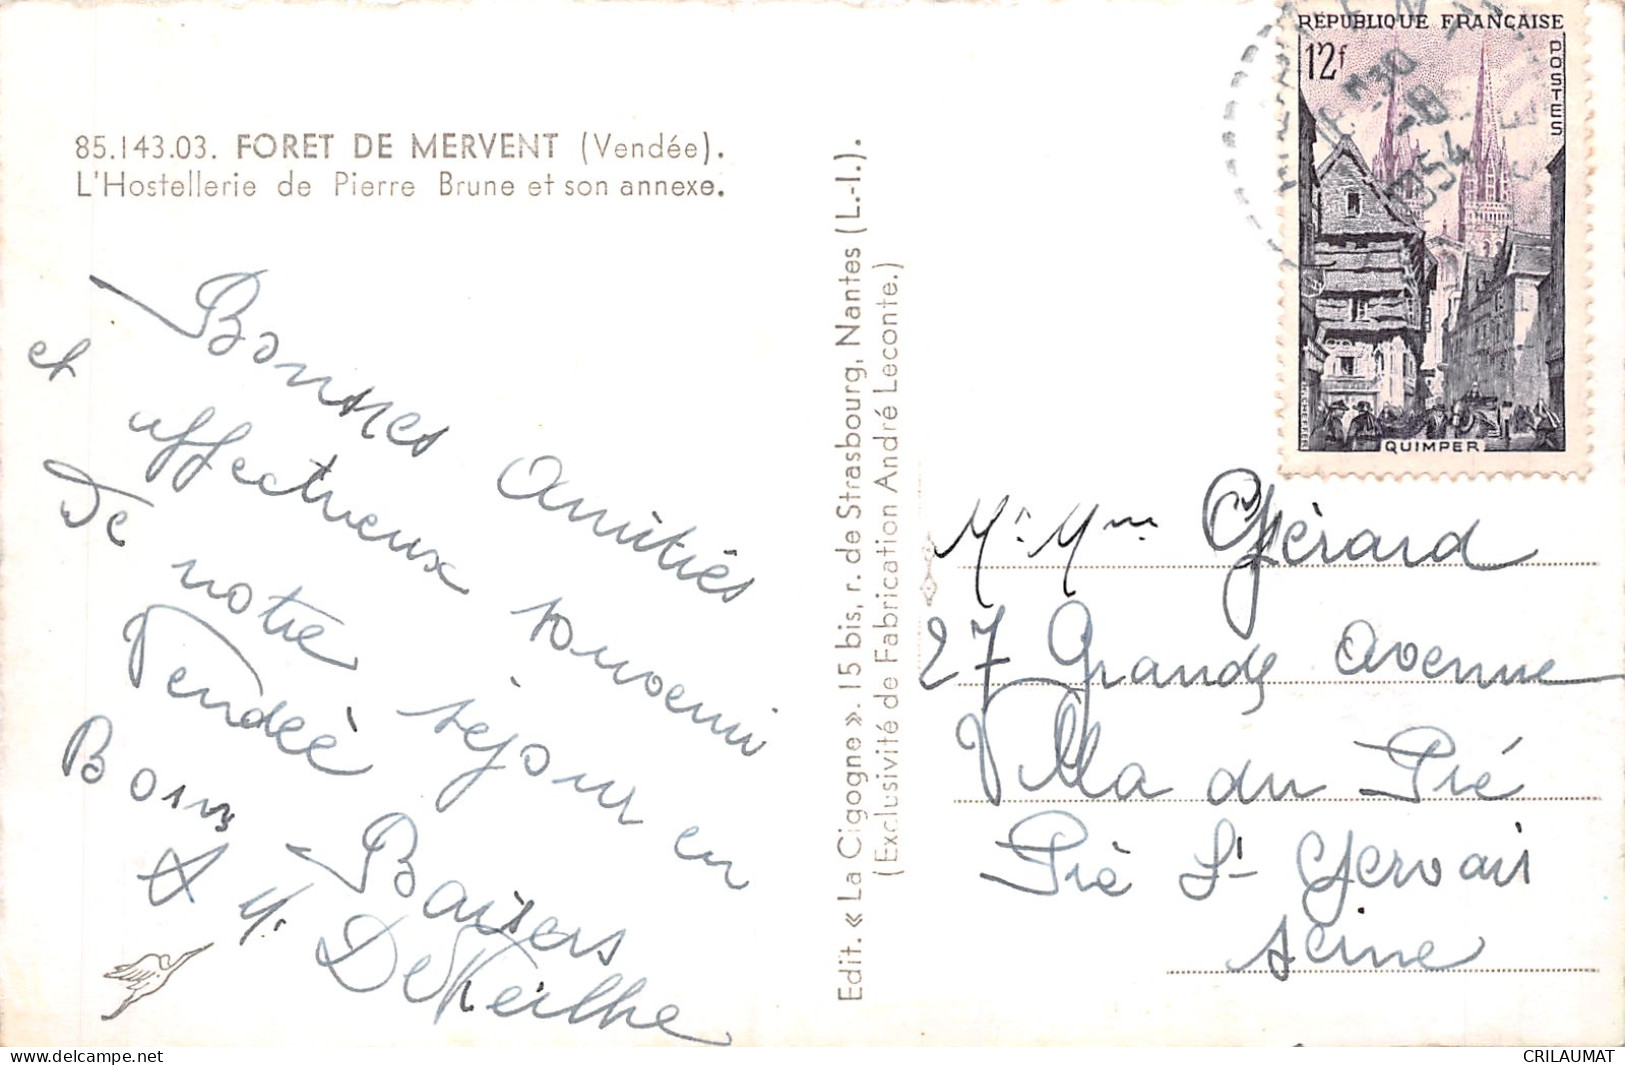 85.143.03. FORET DE MERVENT (Vendée).
L'Hostellerie de Pierre Brune et son annexe.
Bonnes Amitiés
et affectueux souvenir
De notre séjour en
Vendée
Bons Baisers
Edit. « La Cigogne ». 15 bis, r. de Strasbourg, Nantes (L.-I.).
(Exclusivité de Fabrication André Leconte.)
REPUBLIQUE FRANÇAISE
12f
POSTES
QUIMPER
54
Mr Mme Gérard
27 Grande Avenue
Villa du Pré
Pré St Gervais
Seine
https://www.delcampe.net
CRILAUMAT